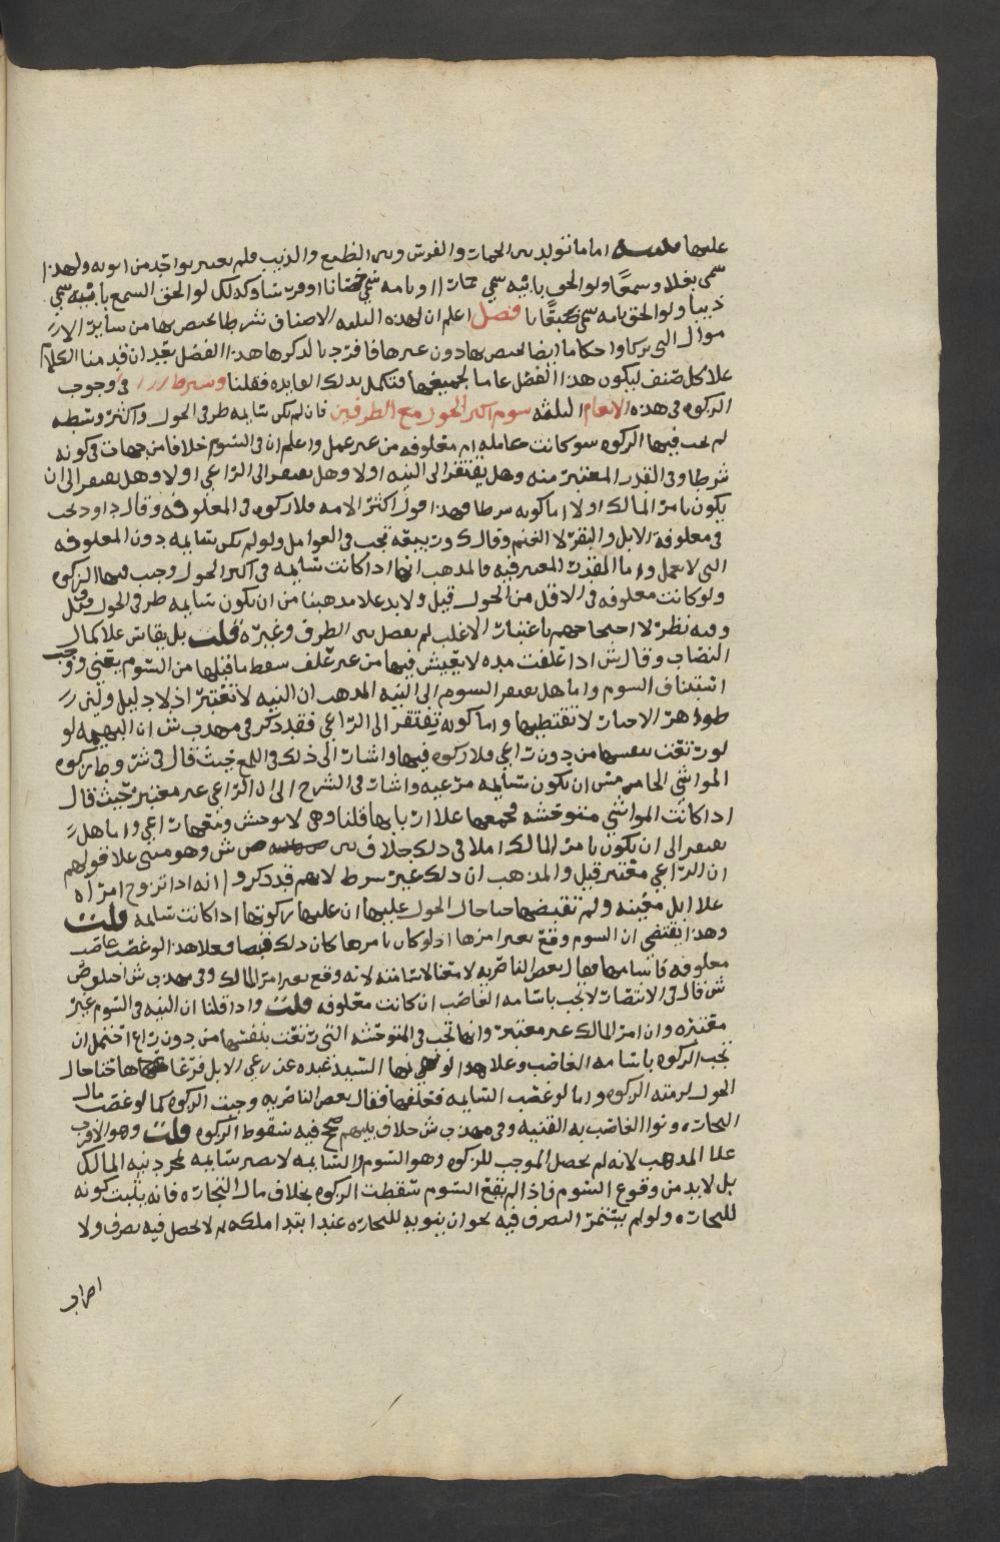 عليها اما ما تولد بين الحمار والفرس وبين الضبع والذيب فلم يعتبر بواحد من ابويه ولهذا
سمي بغلا وسمعا ولو الحق بابيه سمي حمارا او بامه سمي حصانا او فرسا وكذلك لو الحق السمع بابيه سمي
ذيبا ولو الحق بامه سمي ضبعا فصل اعلم ان لهذه الثلثه الاصناف شرطا يختص بها من ساير
اموال التي تزكا واحكاما ايضا يختص بها دون غيرها فافرد بالذكر وها هذا الفصل بعد ان قدمنا الكلام
علا كل صنف ليكون هذا الفصل عاما لجميعها فتكمل بذلك الفايده فقلنا وشرط في وجوب
الزكوه في هذه الانعام الثلثه سوم اكثر الحول مع الطرفين فان لم تكن سايمه طرفي الحول واكثر وسطه
لم تجب فيها الزكوه سوا كانت عامله ام معلوفه من غير عمل واعلم ان في السوم خلافا من جهات في كونه
شرطا وفي القدر المعتبر منه وهل يفتقر الى النيه او لا وهل يفتقر الى الراعي او لا وهل يفتقر الى ان
يكون بامر المالك او لا اما كونه شرطا فهذا قول اكثر الامه فلا زكوه في المعلوفه وقال داود تجب
في معلوفة الابل والبقر لا الغنم وقال ك وربيعه تجب في العوامل ولو لم تكن سايمه دون المعلوفه
التي لا تعمل واما القدر المعتبر فيه فالمذهب انها اذا كانت سايمه في اكثر الحول وجب فيها الزكوه
ولو كانت معلوفه في الاقل من الحول قيل ولا بد علا مذهبنا من ان تكون سايمه طرفي الحول
وفيه نظر لان احتجاجهم باعتبار الاغلب لم يفصل بين الطرف وغيره قلت بل يقاس علا كمال
النصاب وقال ش اذا علفت مده لا تعيش فيها من غير علف سقط ما قبلها من السوم يعني ووجب
استيناف السوم واما هل يفتقر السوم الى النيه المذهب ان النيه لا تعتبر اذ لا دليل
ظواهر الاخبار لا تقتضيها واما كونه يفتقر الى الراعي فقد ذكر في مهذب ش ان البهيمه لو
لو رتعت بنفسها من دون راعي فلا زكوه فيها واشار الى ذلك في اللمع حيث قال في شروط زكوه
المواشي الخامس ان تكون سايمه مرعيه واشار في الشرح الى ان الراعي غير معتبر حيث قال
اذا كانت المواشي متوحشه فجمعها علا اربابها قلنا وهي لا توحش ومعها راعي واما هل
يفتقر الى ان تكون بامر المالك ام لا في ذلك خلاف بين ص ش وهو مبني علا قولهم
ان الراعي معتبر قيل والمذهب ان ذلك غير شرط لانهم قد ذكروا انه اذا تزوج امراه
علا ابل معينه ولم تقبضها حتا حال الحول عليها ان عليها زكوتها اذا كانت سايمه قلت
وهذا يقتضي ان السوم وقع بغير امرها اذ لو كان بامرها كان ذلك قبضا فعلا هذا لو غصب غاصب
معلوفه فاسامها فقال بعض الناصريه لا معنا لاسامته لانه وقع بغير امر المالك وفي مهذب ش اختلف ص
ش قال في الانتصار لا تجب باسامه الغاصب ان كانت معلوفه قلت واذا قلنا ان النيه في السوم غير
معتبره وان امر المالك غير معتبر وانها تجب في المتوحشه التي رتعت بنفسها من دون راع احتمل ان
تجب الزكوه باسامه الغاصب وعلا هذا لو نها السيد عبده عن رعي الابل فرعاها حتا حال
الحول لزمته الزكوه واما لو غصب السايمه فعلفها فقال بعض الناصريه وجبت الزكوه كما لو غصب مال
التجاره ونوا الغاصب به القنيه وفي مهذب ش خلاف بينهم صحح فيه سقوط الزكوه قلت وهو الاقرب
علا المذهب لانه لم يحصل الموجب للزكوه وهو السوم والسايمه لا تصير سايمه بمجرد نيه المالك
بل لا بد من وقوع السوم فاذا لم يقع السوم سقطت الزكوه بخلاف مال التجاره فانه يثبت كونه
للتجاره ولو لم يستمر التصرف فيه نحو ان ينويه للتجاره عند ابتدا ملكه ثم لا يحصل فيه تصرف ولا